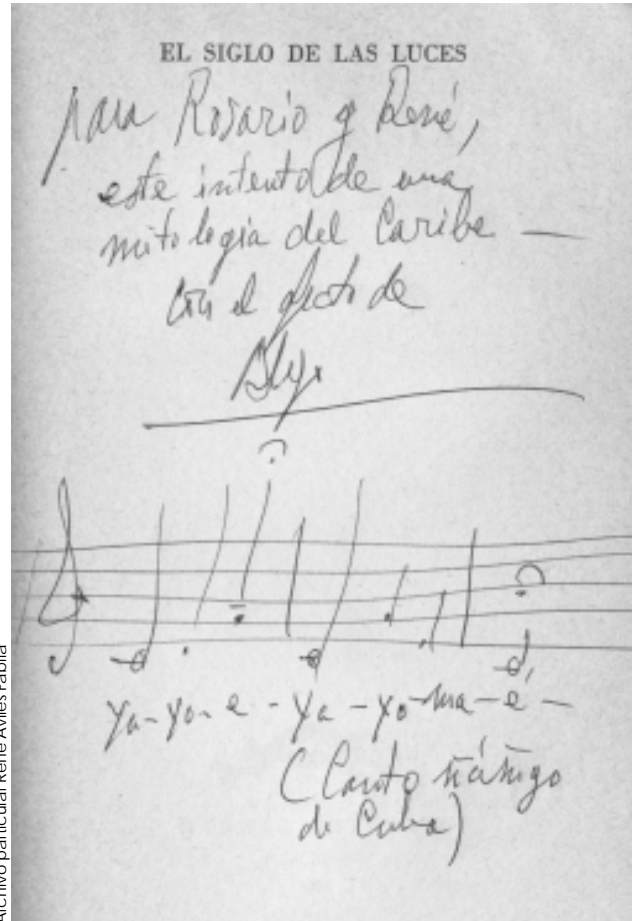 EL SIGLO DE LAS LUCES
para Rosario y René,
este intento de una
mitología del Caribe —
con el afecto de
Alejo
ya-yo-e-ya-yo-ma-é-
(Canto ñáñigo
de Cuba)
Archivo particular René Avilés Fabila